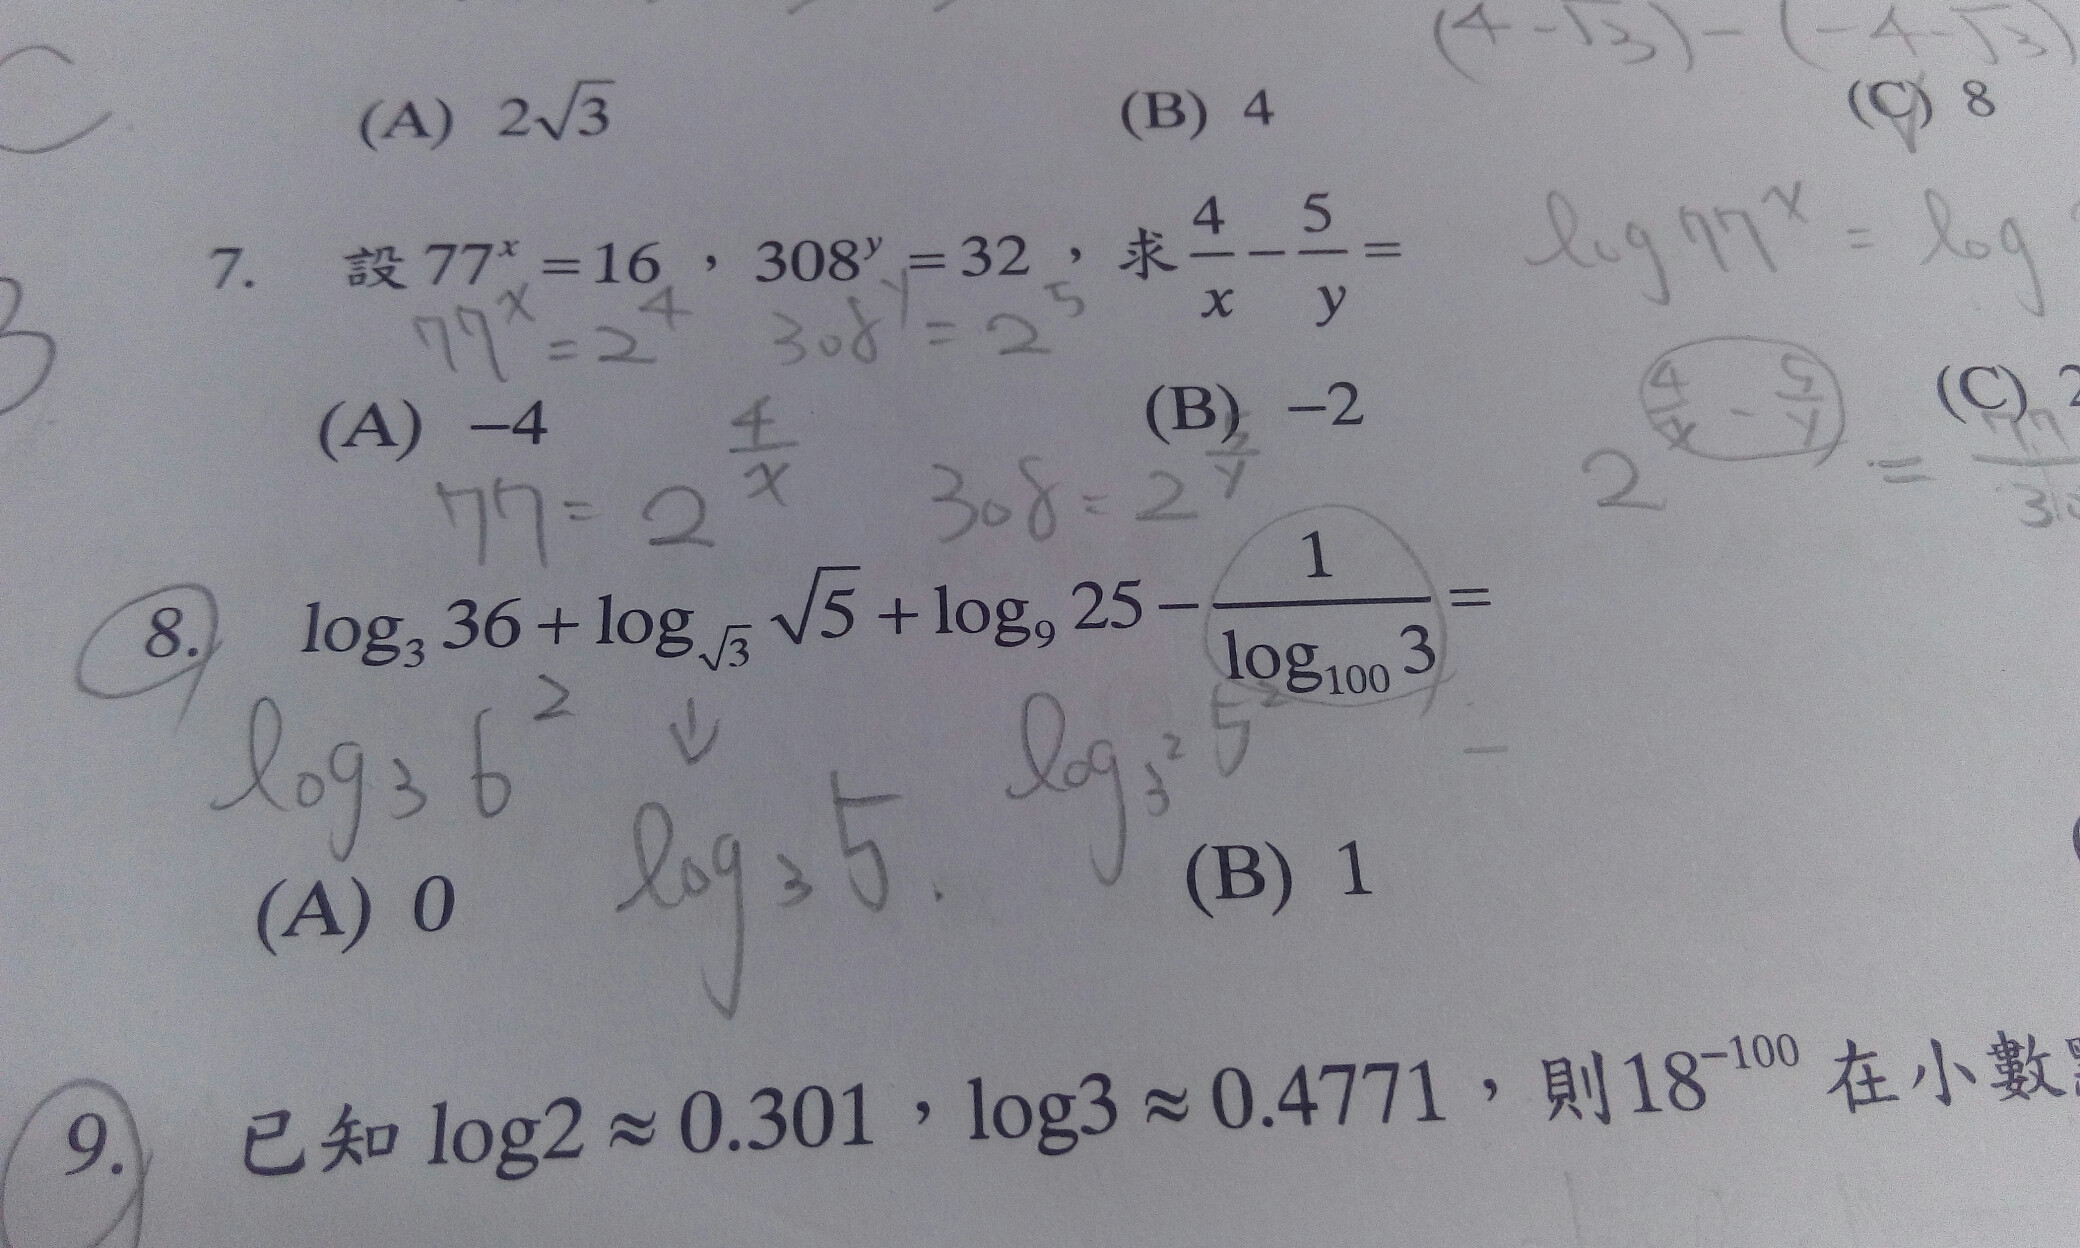 (4-√3)-(-4-√3)
C
(A) 2√3 (B) 4 (C) 8
7. 設 77ˣ = 16 , 308ʸ = 32 , 求 4/x - 5/y =
log 77ˣ = log
77ˣ = 2⁴ 308ʸ = 2⁵
B
(A) -4 (B) -2 (C) 2
77 = 2^(4/x) 308 = 2^(5/y) 2^(4/x - 5/y) = 77/
8. log₃ 36 + log_√3 √5 + log₉ 25 - 1/(log₁₀₀ 3) =
log₃ 6² ↓ log₃² 5² -
log₃ 5.
(A) 0 (B) 1
9. 已知 log2 ≈ 0.301 , log3 ≈ 0.4771 , 則 18⁻¹⁰⁰ 在小數